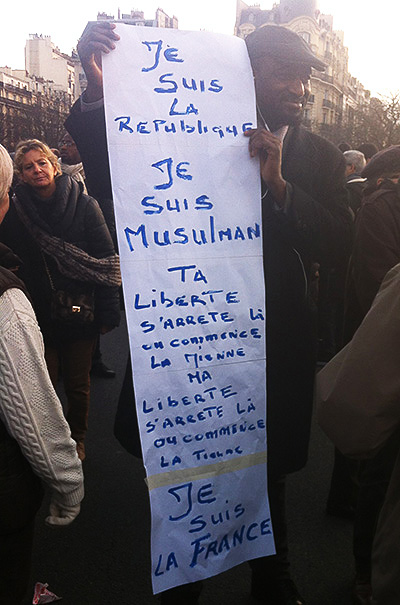 JE
SUIS
LA
REPUBLIQUE
JE
SUIS
MUSULMAN
TA
LIBERTE
S'ARRETE LÀ
OU COMMENCE
LA MIENNE
MA
LIBERTE
S'ARRETE LÀ
OU COMMENCE
LA TIENNE
JE
SUIS
LA FRANCE